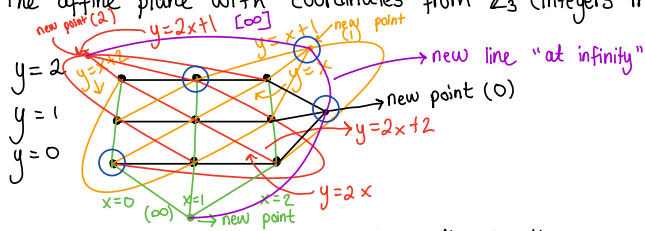 The affine plane with coordinates from Z₃ (integers
new point (2)
y=2x+1
[∞]
y=x+1
new point (1)
y=x+2
y=x
new line "at infinity"
y=2
y=1
y=0
new point (0)
y=2x+2
y=2x
x=0
x=1
x=2
(∞)
new point